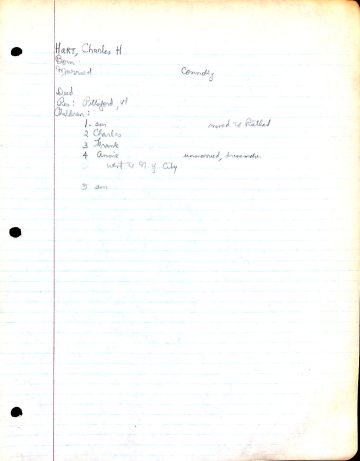 HART, Charles H
Born
Married
Died
Res: Pittsford, Vt
Children:
1. son moved to Rutland
2 Charles
3 Frank
4 Annie unmarried,
went to N.Y. City
5 son